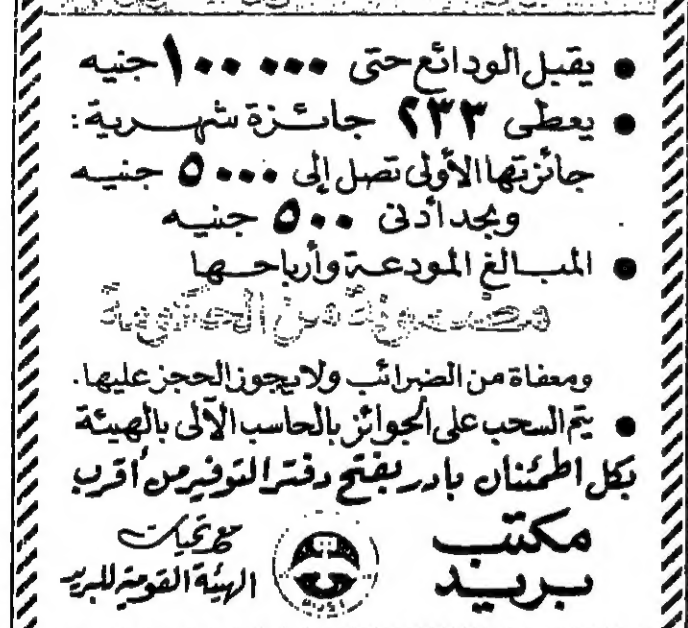 • يقبل الودائع حتى ١٠٠٠٠٠ جنيه
• يعطى ٢٣٣ جائزة شهرية:
جائزتها الأولى تصل إلى ٥٠٠٠ جنيه
وبحد أدنى ٥٠٠ جنيه
• المبالغ المودعة وأرباحها
مضمونة من الحكومة
ومعفاة من الضرائب ولا يجوز الحجز عليها.
• يتم السحب على الجوائز بالحاسب الآلى بالهيئة
بكل اطمئنان بادر بفتح دفتر التوفير من أقرب
مكتب بريد
مع تحيات
الهيئة القومية للبريد